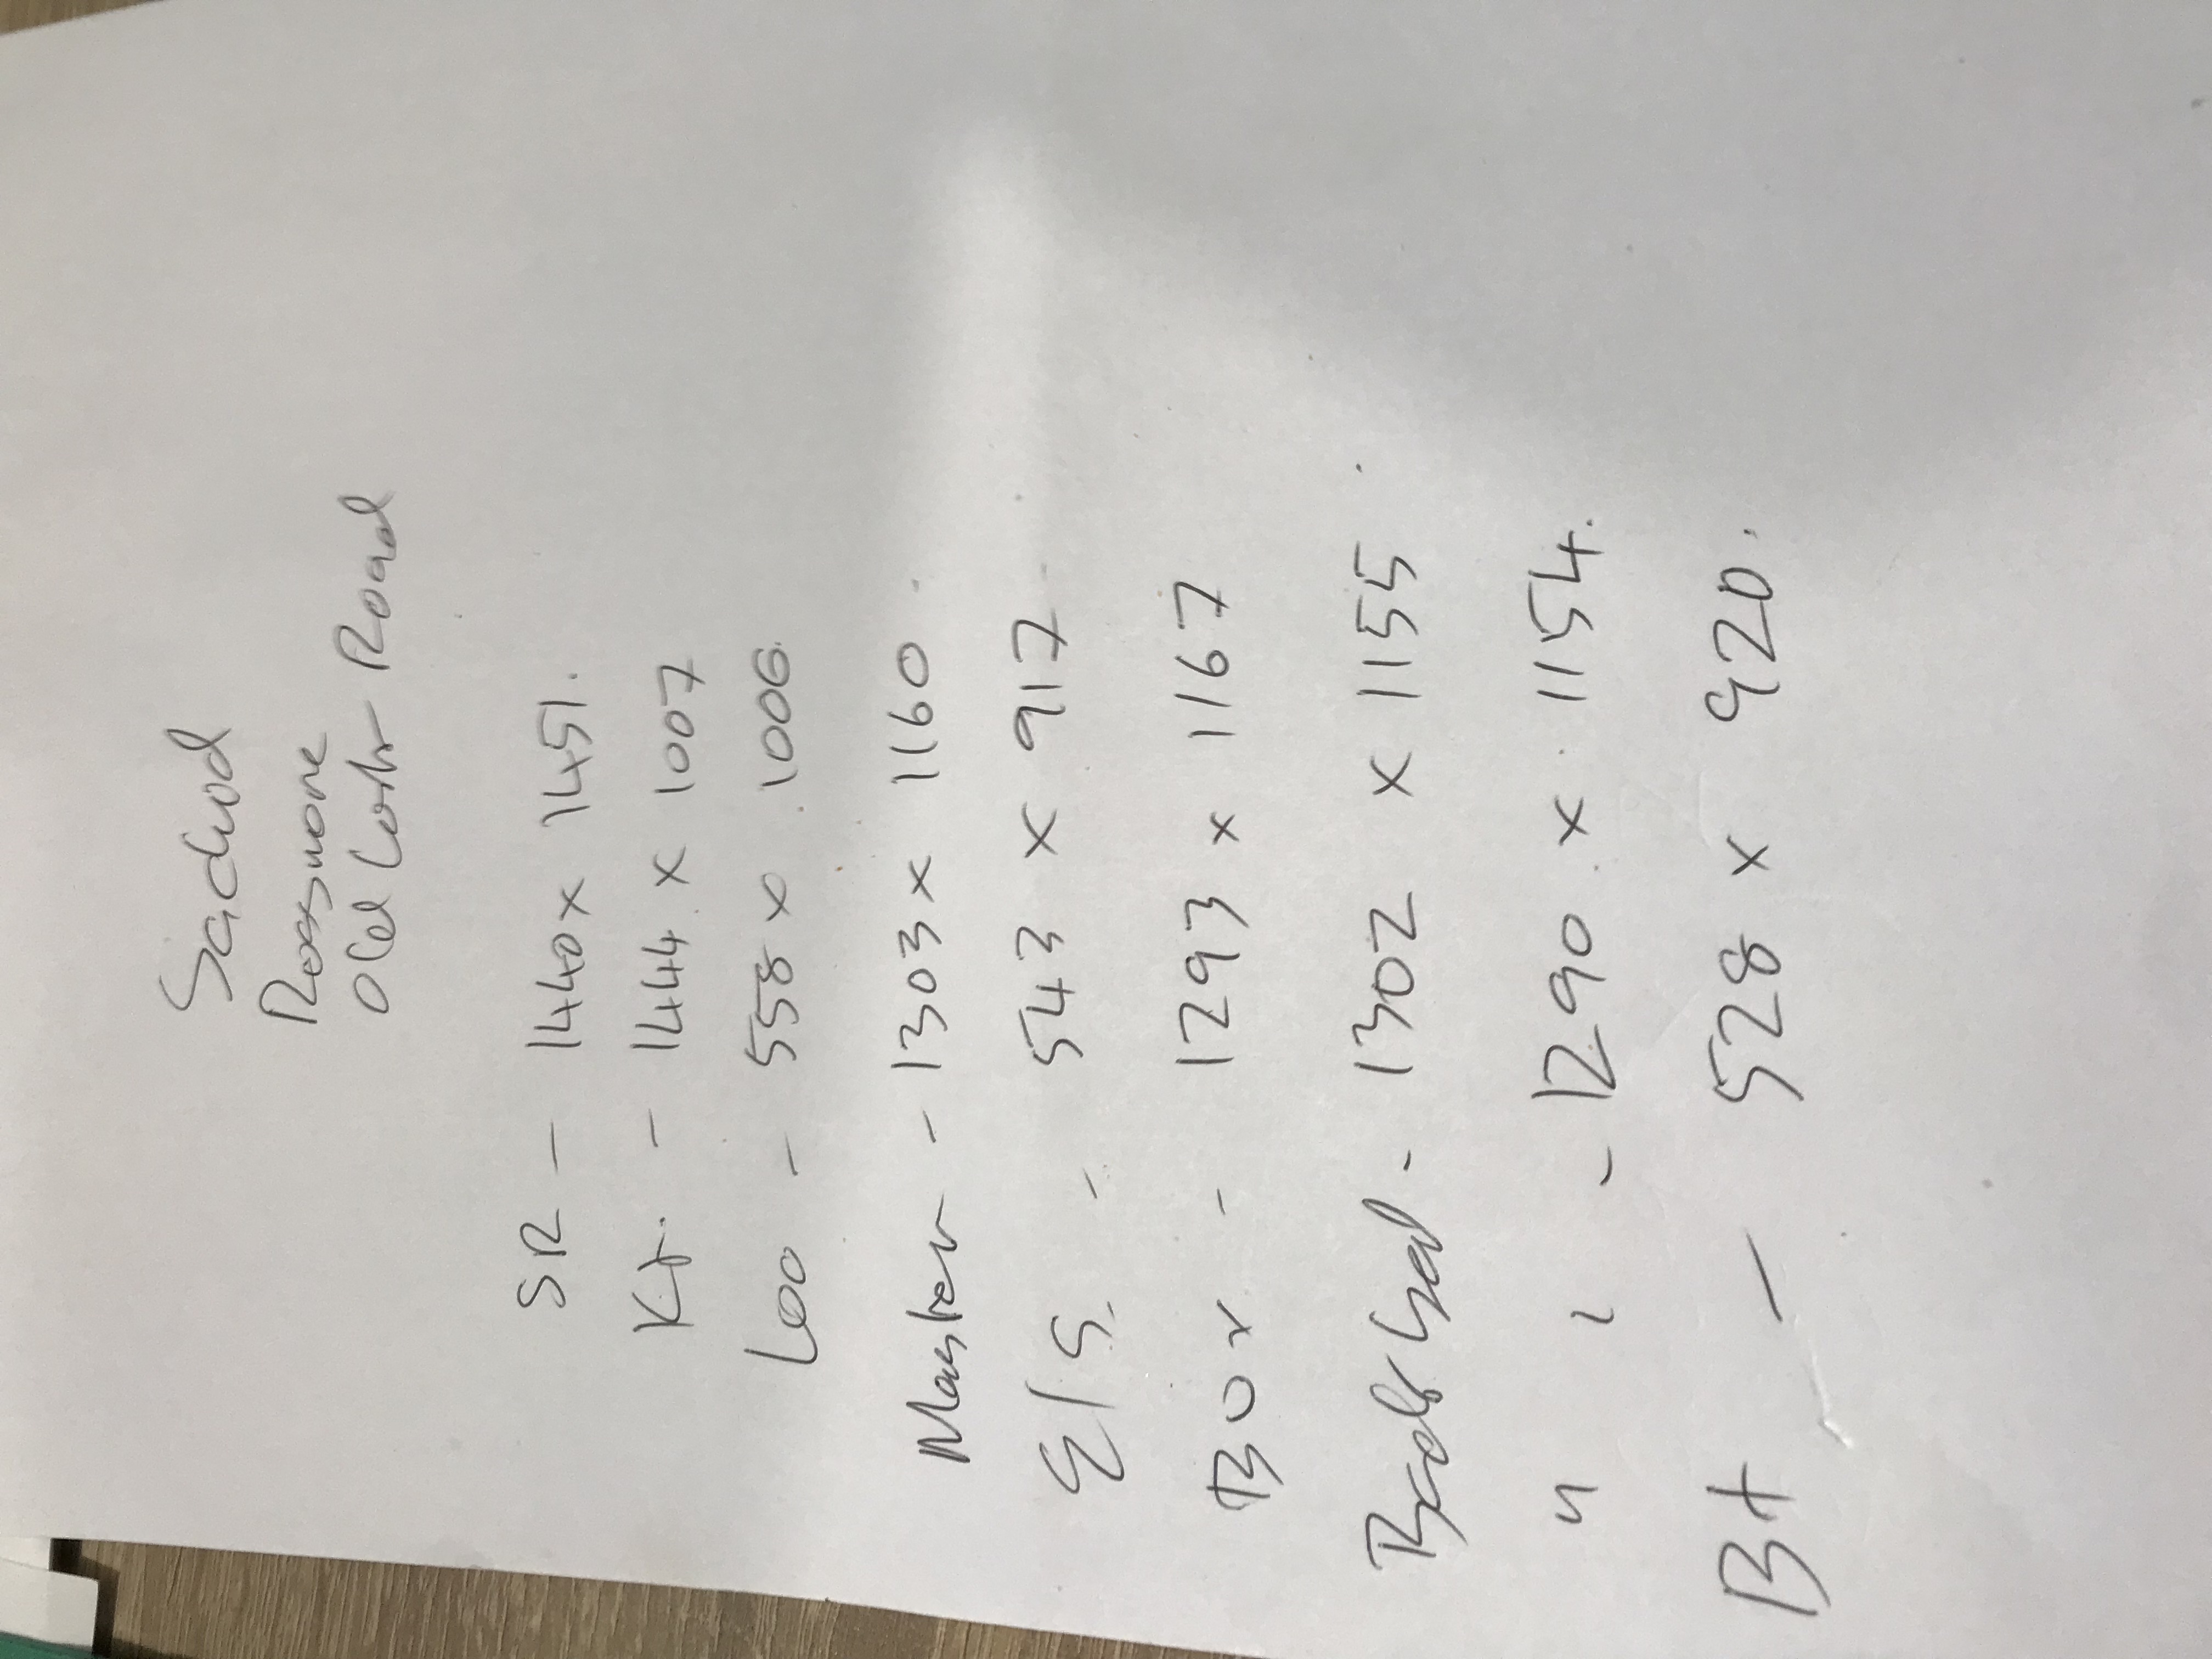 Rossmore
Old Road
SR - 1440 x 1451.
Kt. - 1444 x 1007
Loo - 558 x 1006.
Master - 1303 x 1160.
E/S. - 543 x 917
Box - 1293 x 1167
- 1302 x 1155.
" " - 1290 x 1154.
BH - 528 x 920.